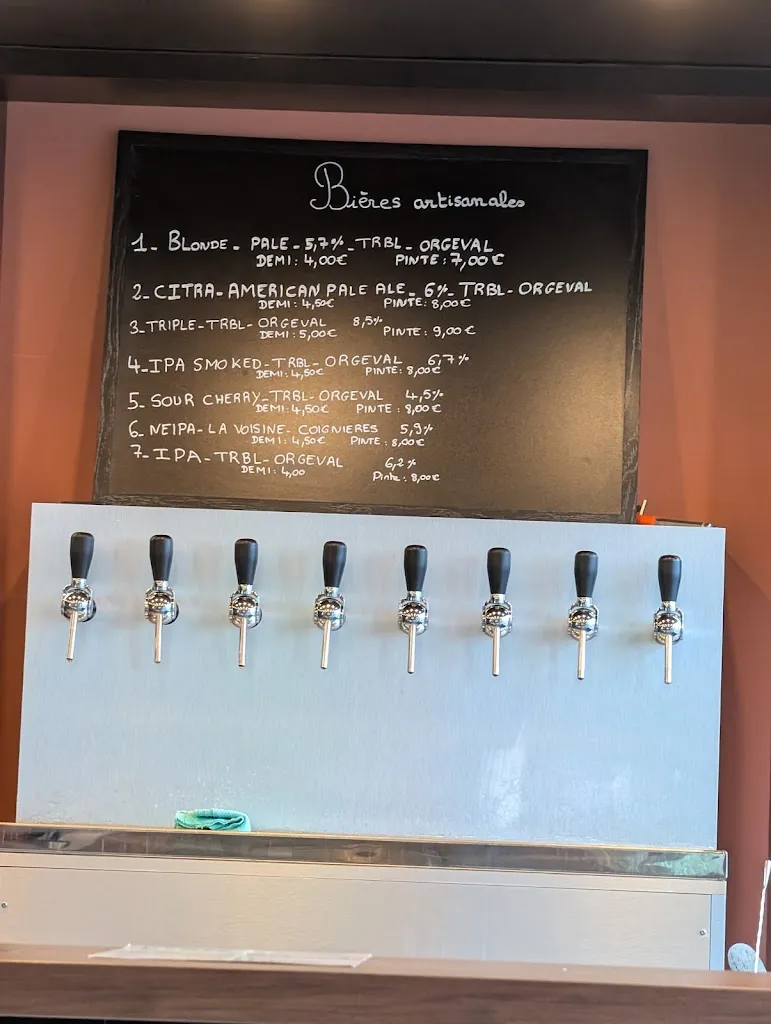 Bières artisanales
1- BLONDE - PALE - 5,7% - TRBL - ORGEVAL
DEMI : 4,00€ PINTE : 7,00€
2- CITRA - AMERICAN PALE ALE - 6% - TRBL - ORGEVAL
DEMI : 4,50€ PINTE : 8,00€
3- TRIPLE - TRBL - ORGEVAL 8,5%
DEMI : 5,00€ PINTE : 9,00€
4- IPA SMOKED - TRBL - ORGEVAL 6,7%
DEMI : 4,50€ PINTE : 8,00€
5- SOUR CHERRY - TRBL - ORGEVAL 4,5%
DEMI : 4,50€ PINTE : 8,00€
6- NEIPA - LA VOISINE - COIGNIERES 5,9%
DEMI : 4,50€ PINTE : 8,00€
7- IPA - TRBL - ORGEVAL 6,2%
DEMI : 4,00 Pinte : 8,00€